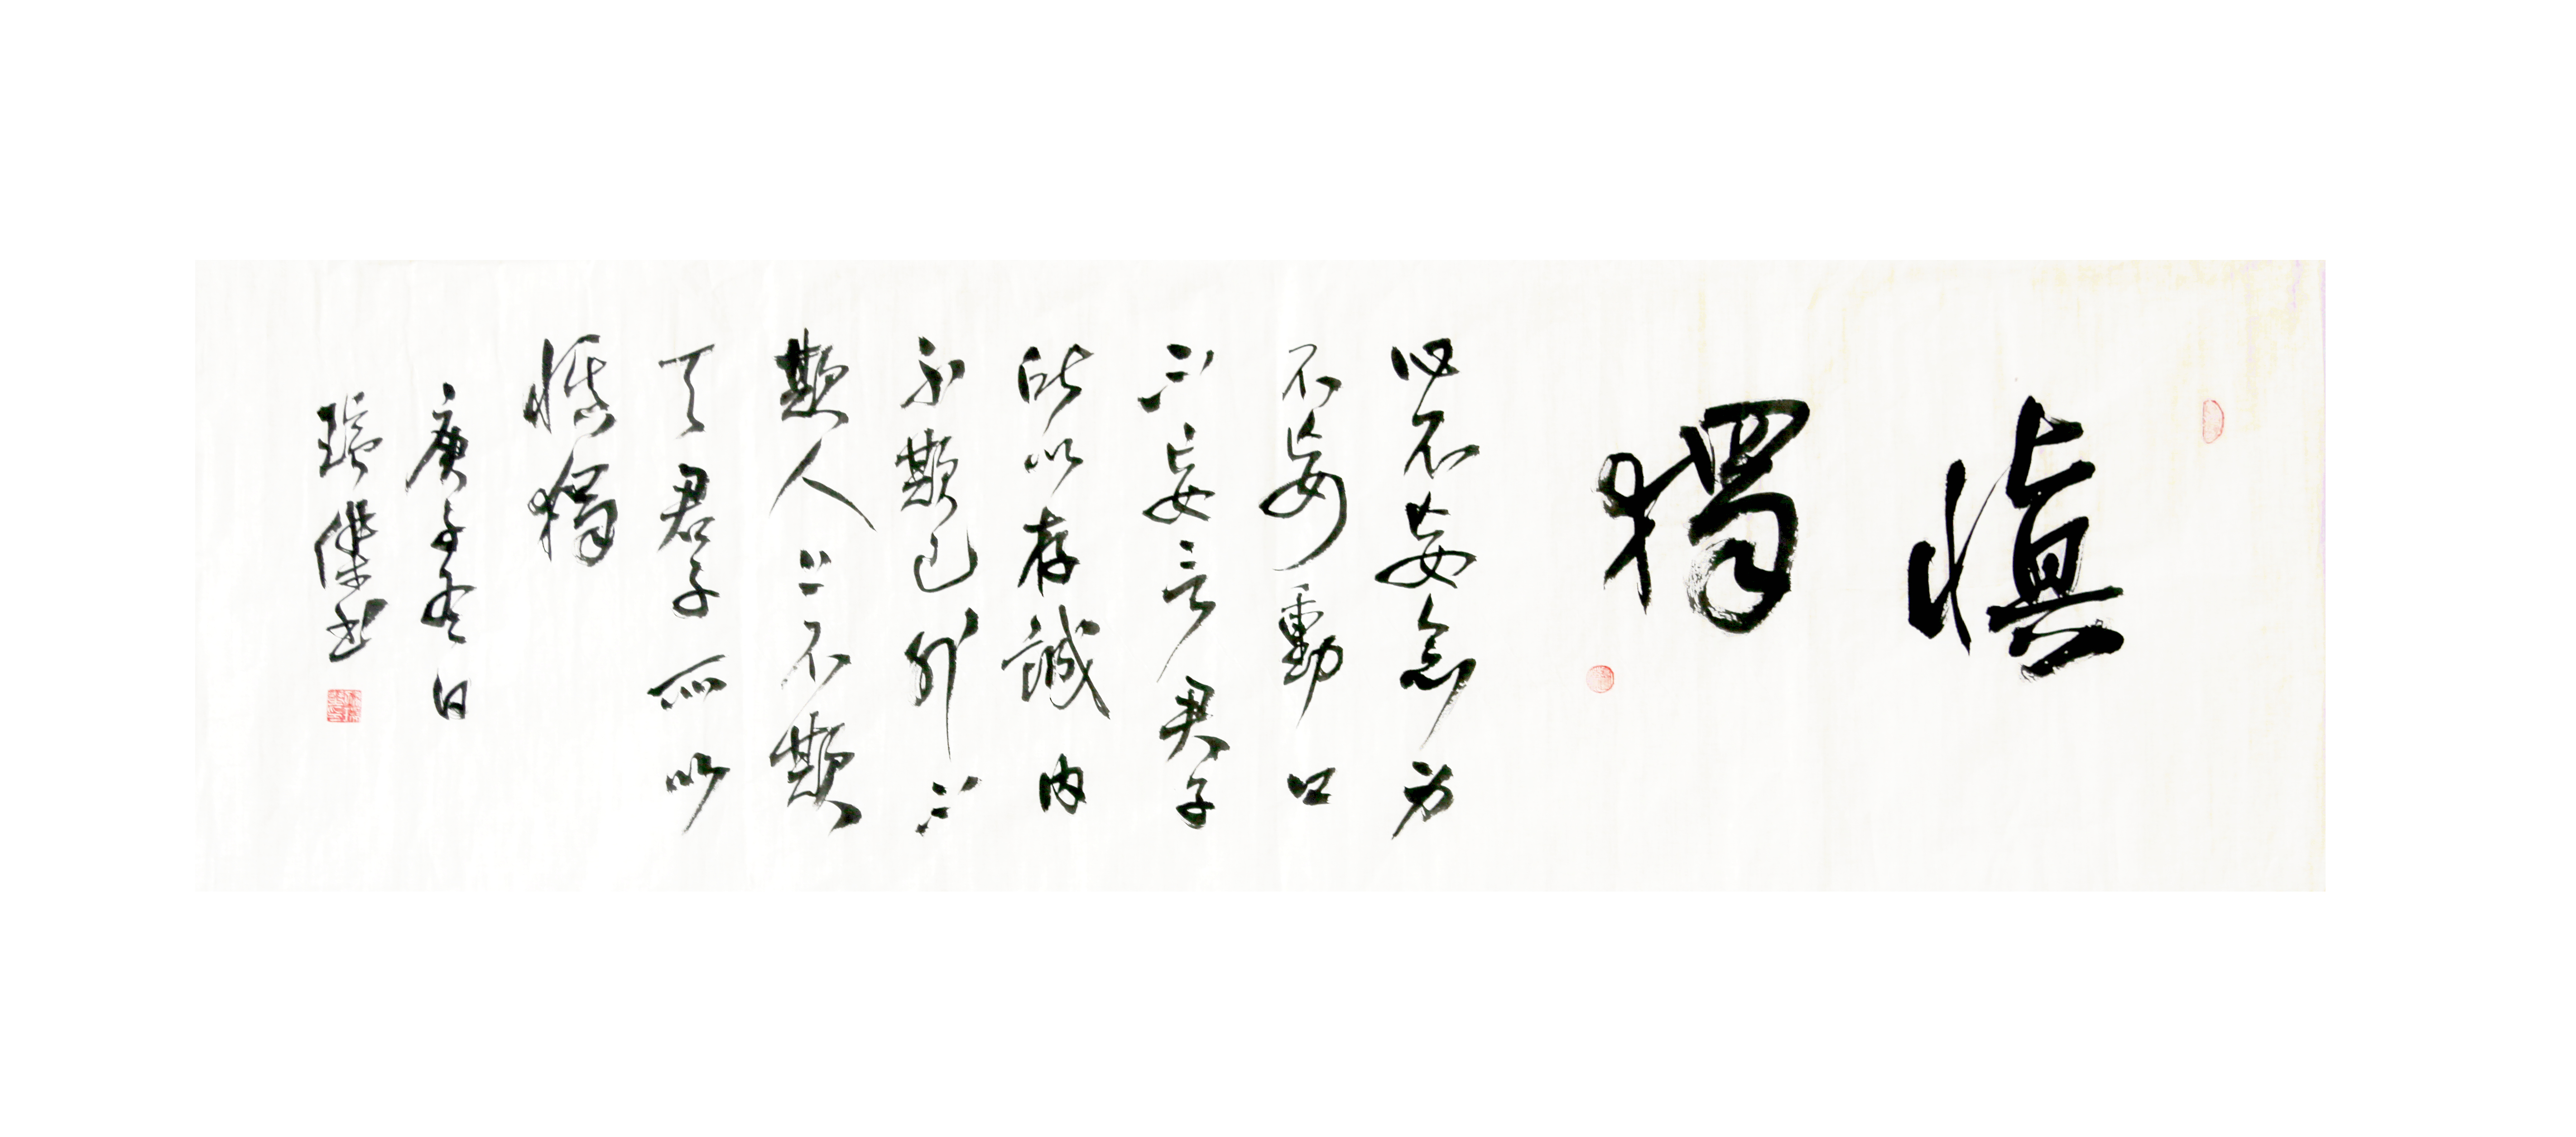 慎獨
心不妄念身
不妄動口
不妄言君子
所以存誠內
不欺己外不
欺人上不欺
天君子所以
慎獨
庚子冬日
傑書